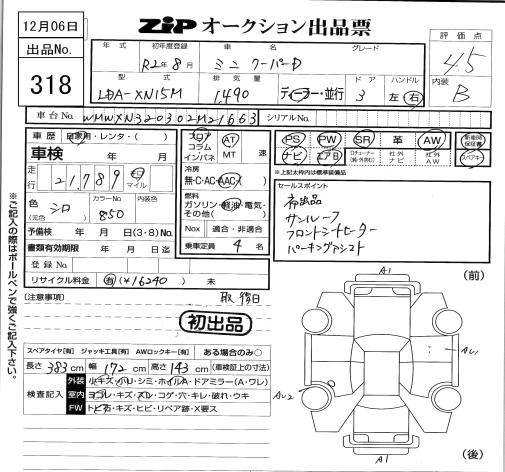 12月06日
ZiP オークション出品票
出品No.
318
評価点
4.5
内装
B
年式 初年度登録 車名 グレード
R2年8月 ミニ クーパーD
型式 排気量 ドア ハンドル
LDA-XN15M 1,490 ディーラー・並行 3 左 右
車台No. WMWXN320302M21663 シリアルNo.
車歴 自家用・レンタ・( )
車検 年 月
走行 21,789 キロ マイル
色 (元色) シロ カラーNo. 850 内装色
予備検 年 月 日(3・8)No.
書類有効期限 年 月 日迄
登録No.
リサイクル料金 有(¥16240) 未
フロア コラム インパネ AT MT 速
冷房
無・C・AC・AAC
燃料
ガソリン・軽油・電気・その他( )
Nox 適合・非適合
乗車定員 4 名
PS PW SR 革 AW 新車時保証書
ナビ エアB 社外ナビ 社外AW スペアキー
※上記太枠内は標準装備品
セールスポイント
希出品
サンルーフ
フロントシートヒーター
パーキングアシスト
(注意事項)
初出品
スペアタイヤ[有] ジャッキ工具[有] AWロックキー[有] ある場合のみ○
長さ 383cm 幅 172cm 高さ 143cm (車検証上の寸法)
検査記入
外装 小キズ・ハリ・シミ・ホイルA・ドアミラー(A・ワレ)
室内 ヨゴレ・キズ・スレ・コゲ・穴・キレ・破れ・ウキ
FW トビ石・キズ・ヒビ・リペア跡・X要ス
※ご記入の際はボールペンで強くご記入下さい。
A1 (前)
AU1
AU2
A1 (後)